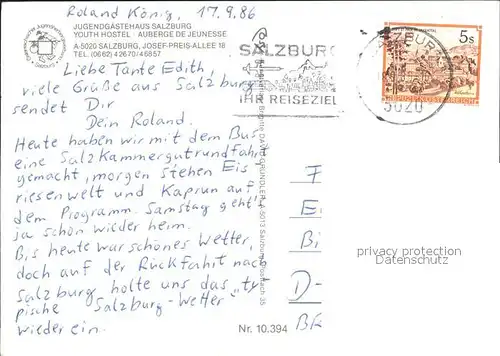 Roland König, 17.9.86
JUGENDGÄSTEHAUS SALZBURG
YOUTH HOSTEL · AUBERGE DE JEUNESSE
A-5020 SALZBURG, JOSEF-PREIS-ALLEE 18
TEL. (0662) 42670/46857
Liebe Tante Edith,
viele Grüße aus Salzburg
sendet Dir
Dein Roland.
Heute haben wir mit dem Bus
eine Salzkammergutrundfahrt
gemacht, morgen stehen Eis
riesenwelt und Kaprun auf
dem Programm. Samstag geht's
ja schon wieder heim.
Bis heute war schönes Wetter,
doch auf der Rückfahrt nach
Salzburg holte uns das "ty
pische Salzburg-Wetter"
wieder ein.
SALZBURG
IHR REISEZIEL
SALZBURG
5020
5s
REPUBLIK ÖSTERREICH
F
E
Bi
D-
BR
privacy protection
Datenschutz
Nr. 10.394